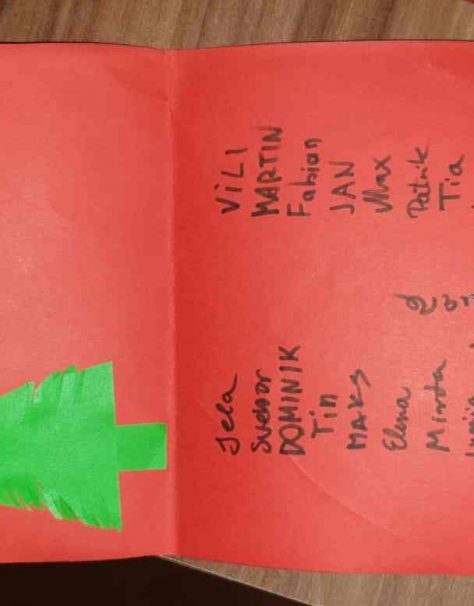 Jela
Svebor
DOMINIK
Tin
MAKS
Elena
Mirta
ViLI
MARTIN
Fabian
JAN
Max
Patrik
Tia